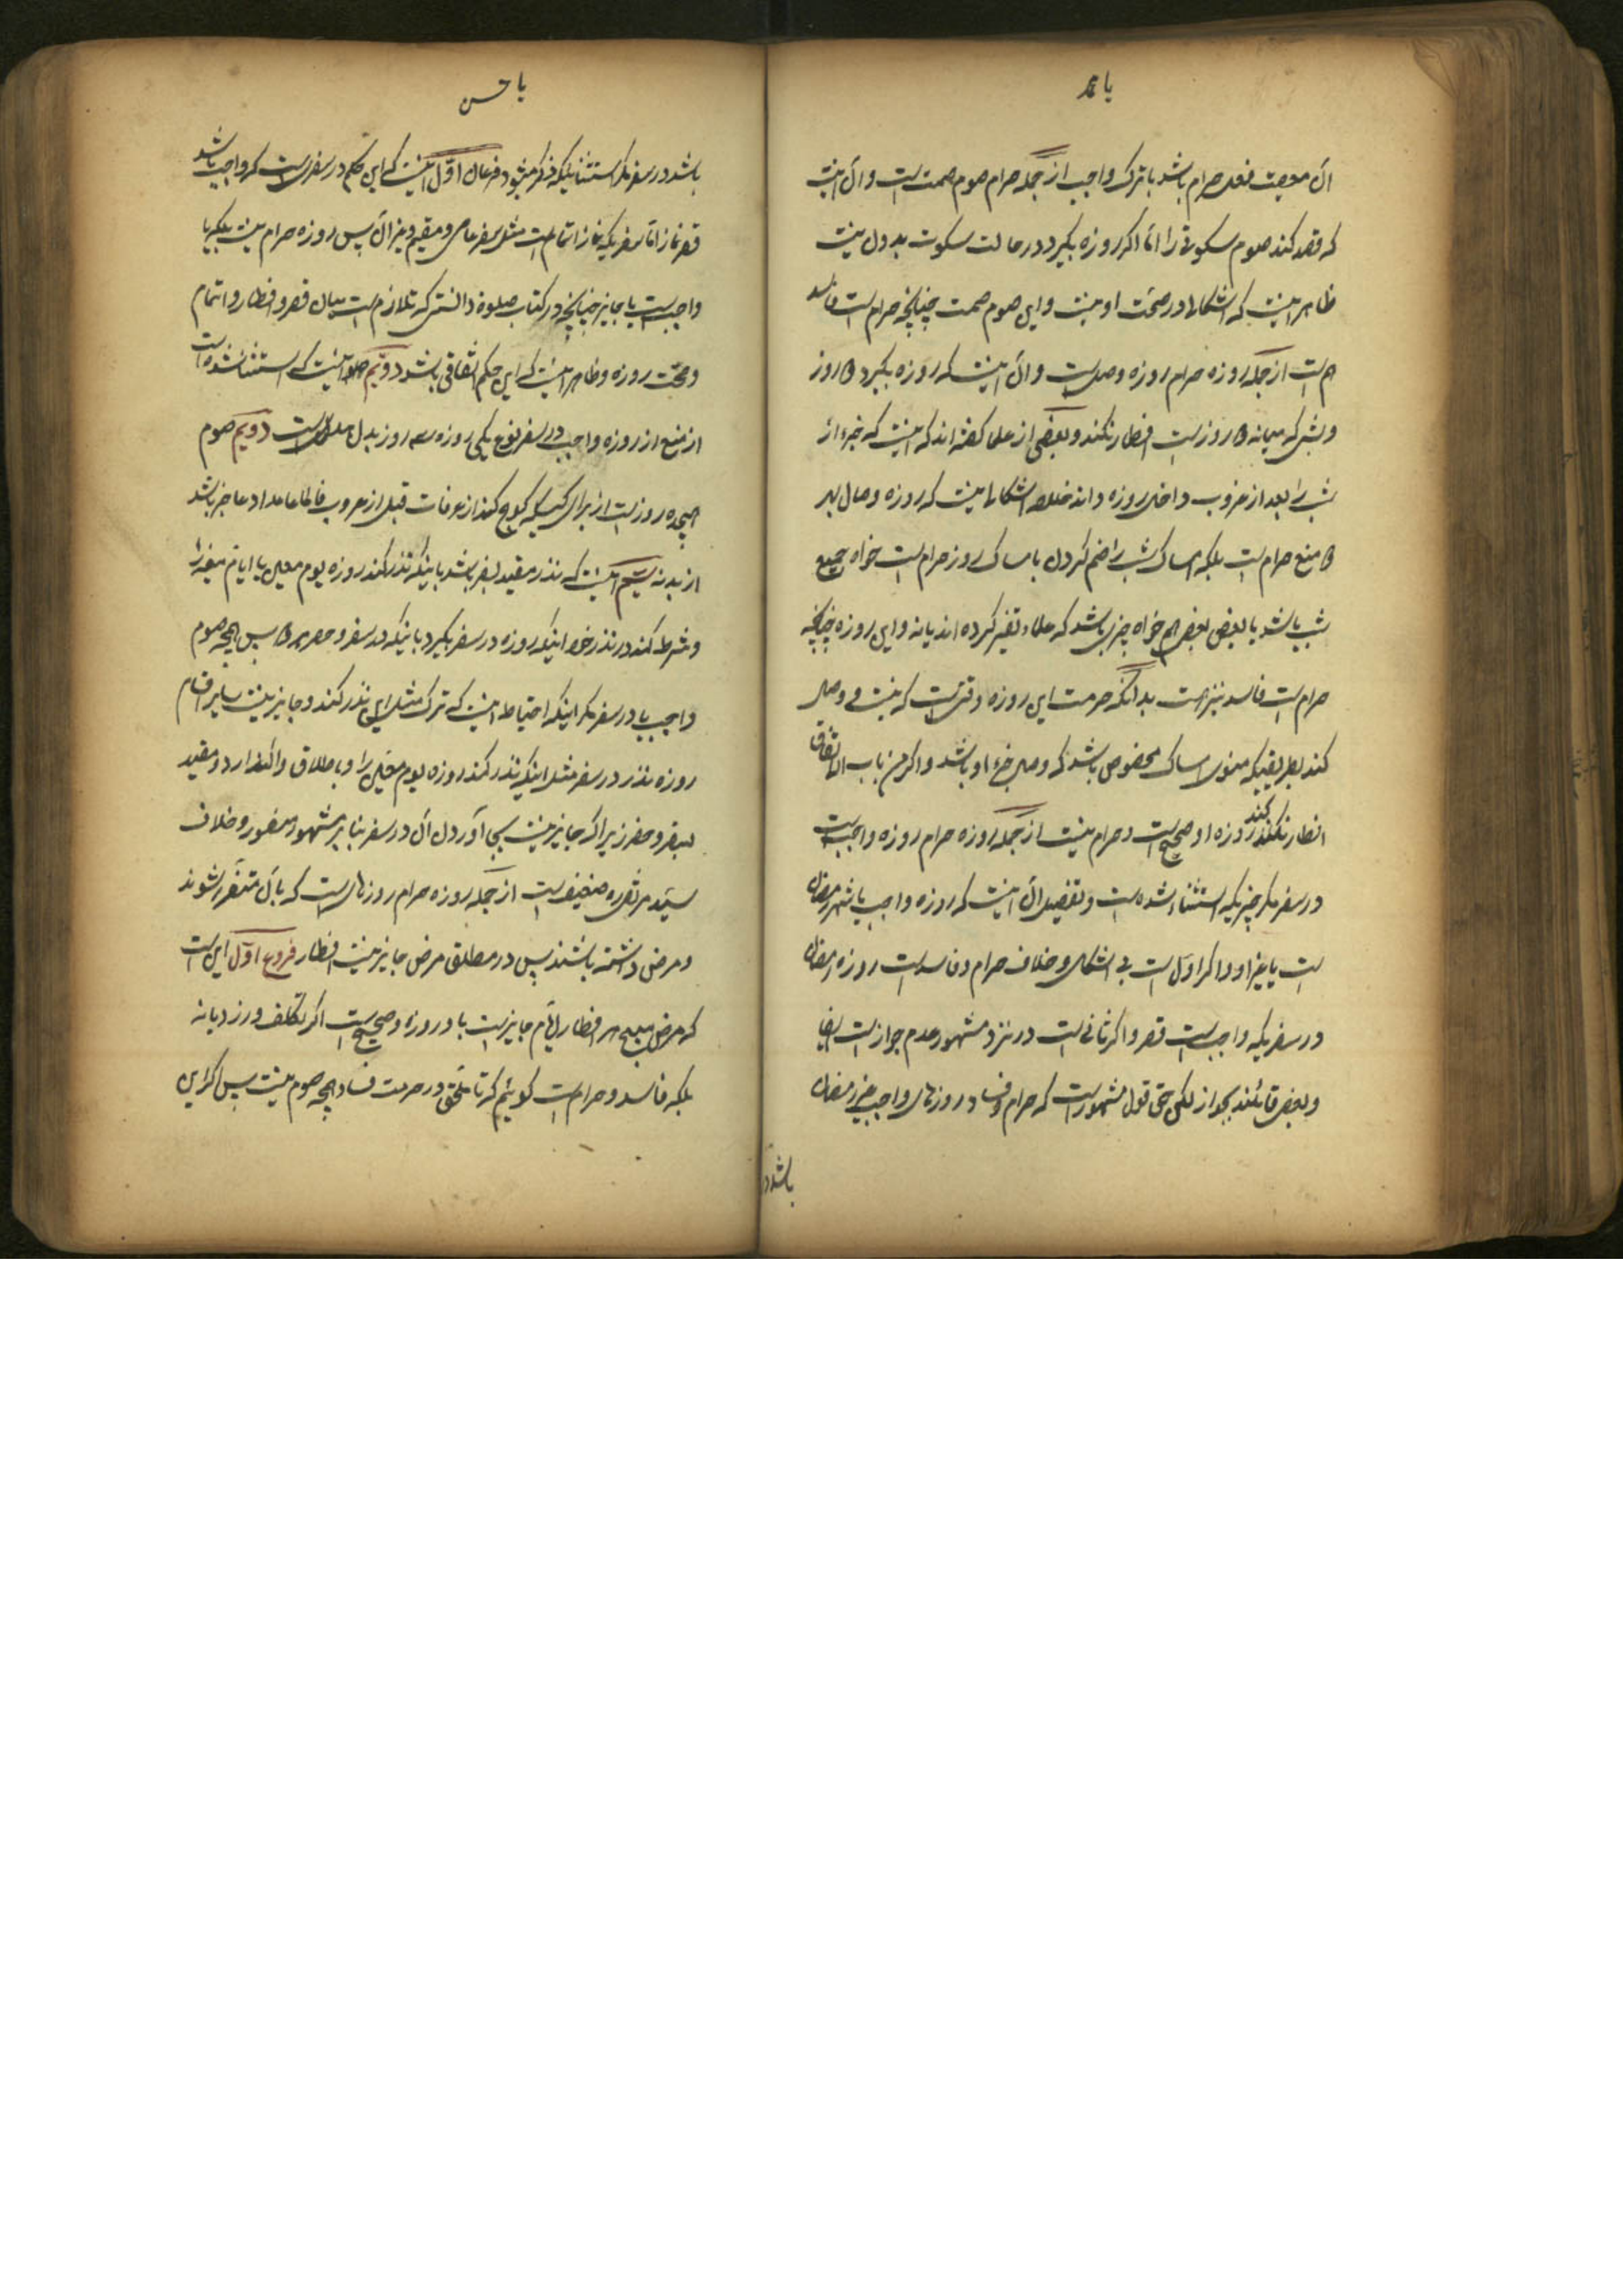 یا محمد
آن معصیت فعل حرام باشد یا ترک واجب از جمله حرام صوم صمت است و آن اینست
که قصد کند صوم سکوتی را اما اگر روزه بگیرد در حالت سکوت بدون نیت
ظاهر اینست که اشکالی در صحت او نیست و این صوم صمت چنانچه حرام است فاسد
هم است از جمله روزه حرام روزه وصل است و آن اینست که روزه بگیرد دو روز
و شبی که میانه دو روز است افطار نکند و بعضی از علما گفته اند که اینست که جزء از
شب را بعد از غروب داخل روزه داند خلاصه اشکالی نیست که روزه وصال بهر
دو معنی حرام است بلکه امساک شب را ضم کردن بامساک روز حرام است خواه جمیع
شب باشد یا بعض بعض هم خواه جزیی باشد که علماء تفسیر کرده اند یا نه و این روزه چنانچه
حرام است فاسد نیز هست بدانکه حرمت این روزه وقتی است که نیت وصل
کند بطریقیکه منوی امساک مخصوص باشد که وصل جزء او باشد و اگر من باب الاتفاق
افطار نکند روزه او صحیح است و حرام نیست از جمله روزه حرام روزه واجب است
در سفر مگر چیزیکه استثناء شده است و تفصیل آن اینست که روزه واجب یا شهر رمضان
است یا غیر او و اگر اول است بی اشکال و خلاف حرام و فاسد است روزه رمضان
در سفریکه واجب است قصر و اگر ثانی است در نزد مشهور عدم جواز است ایضا
و بعض قائلند بجواز لکن حق قول مشهور است که حرام و فساد روزهای واجب غیر رمضان
باشد در
یا حسن
باشد در سفر مگر استثنائیکه ذکر میشود فرعان اول اینست که این حکم در سفری است که واجب باشد
قصر نماز اما سفریکه نماز اتمام است مثل سفر عاصی و مقیم و غیر آن پس روزه حرام نیست بلکه یا
واجب است یا جایز چنانچه در کتاب صلوة دانستی که تلازم است میان قصر و افطار و اتمام
و صحت روزه و ظاهر اینست که این حکم اتفاقی باشد دویم اینست که استثنا شده است
از منع از روزه واجب در سفر نوع یکی روزه سه روز بدل است دویم صوم
هیجده روز است از برای کسیکه کوچ کند از عرفات قبل از غروب عامدا و عاجز باشد
از بدنه سیم آنست که نذر مقید بسفر باشد باینکه نذر کند روزه یوم معین یا ایام
و شرط کند در نذر خود اینکه روزه در سفر بگیرد یا اینکه در سفر و حضر هر دو پس همچه صوم
واجب یا در سفر مگر اینکه احتیاط اینست که ترک مثل این نذر کند و جایز نیست سایر اقسام
روزه نذر در سفر مثل اینکه نذر کند روزه یوم معین را و باطلاق واگذارد و مقید
بسفر و حضر زیرا که جایز نیست بجا آوردن آن در سفر بنابر مشهور منصور و خلاف
سید مرتضی ره ضعیف است از جمله روزه حرام روزهائی است که بآن متضرر شوند
و مرض داشته باشند پس در مطلق مرض جایز نیست افطار فروع اول این است
که مرض مبیح افطار ایا هم جایز است با او روزه و صحیح است اگر تکلف ورزد یا نه
بلکه فاسد و حرام است گوئیم که تاملی در حرمت فساد همچه صوم نیست پس اگر این